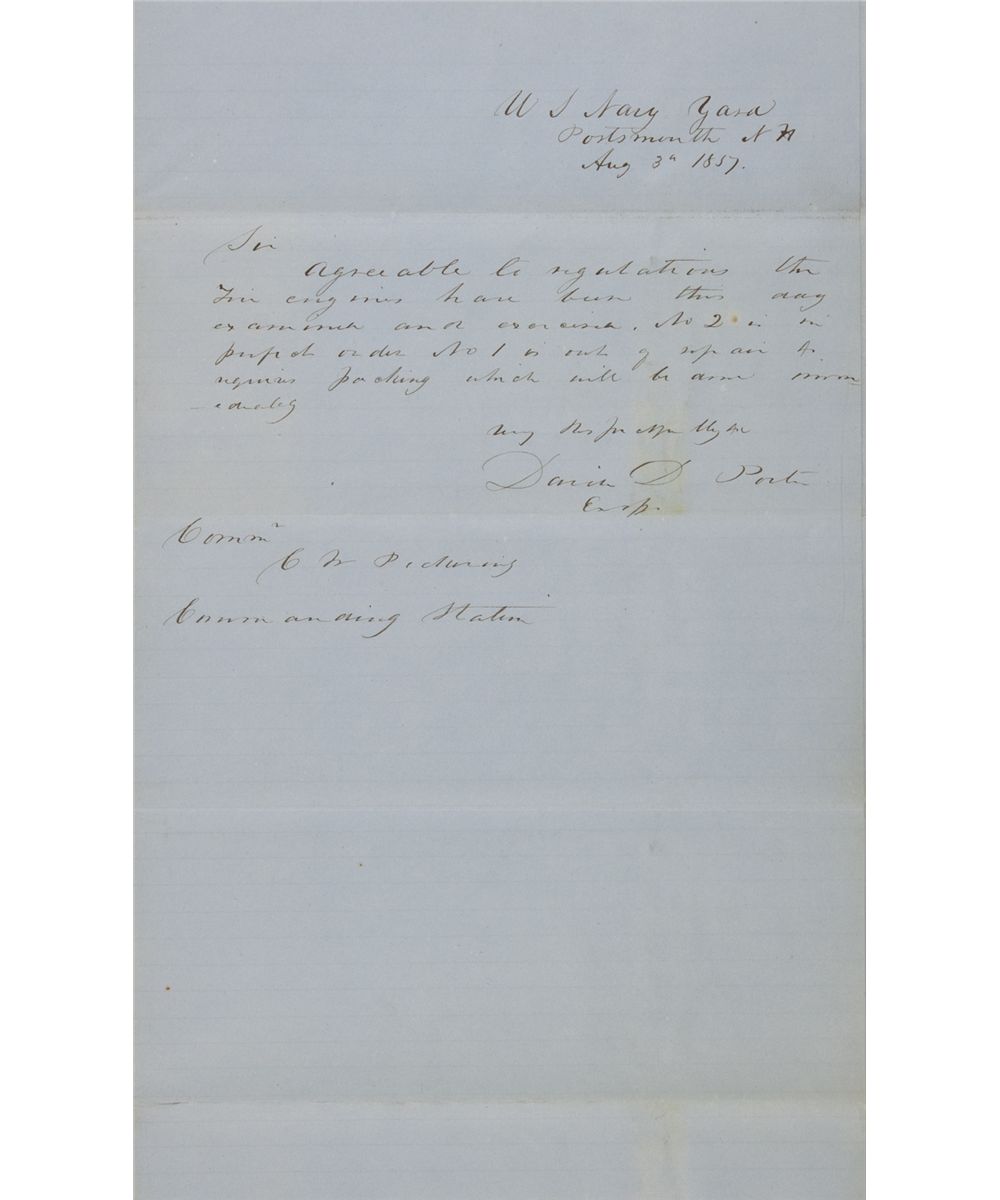 U S Navy Yard
Portsmouth N H
Aug 3d 1857.
Sir
Agreeable to regulations the
Fire engines have been this day
examined and exercised. No 2 is in
perfect order No 1 is out of repair &
requires packing which will be done imm=
ediately
Very Respectfully
David D Porter
Commr
C W Pickering
Commanding Station